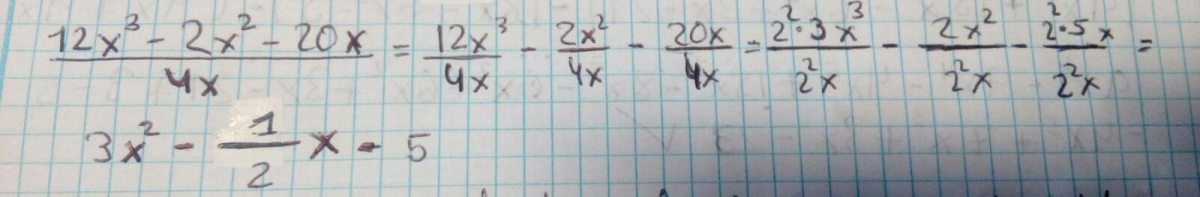 (12x³ - 2x² - 20x)/4x = 12x³/4x - 2x²/4x - 20x/4x = 2²·3x³/2²x - 2x²/2²x - 2²·5x/2²x =
3x² - 1/2 x - 5